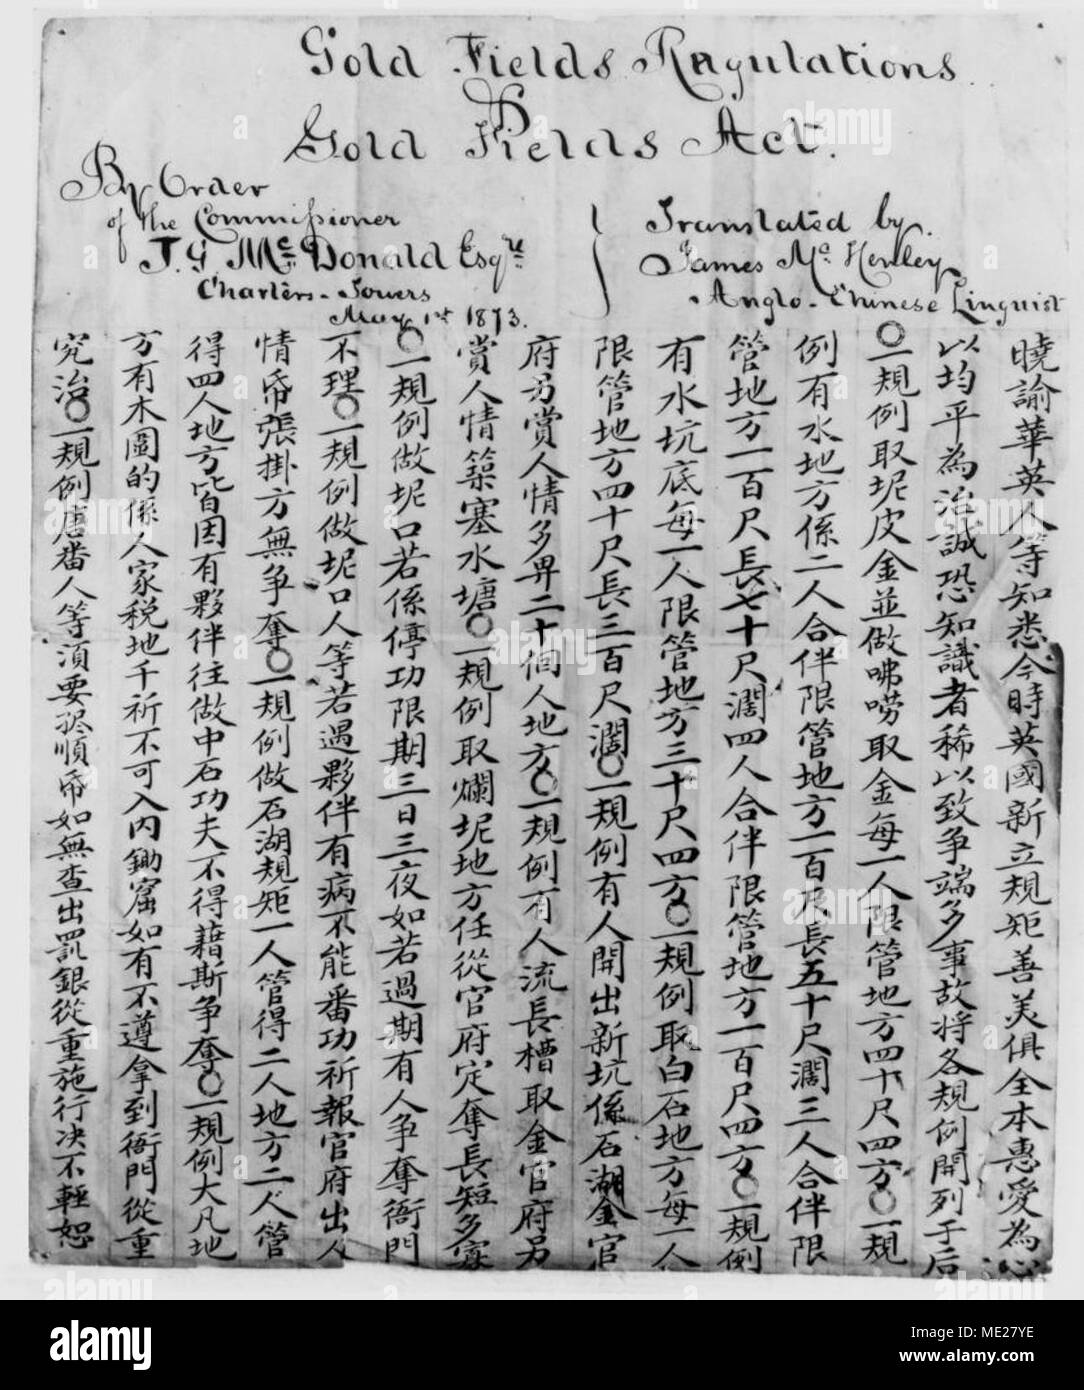 Gold Fields Regulations
&
Gold Fields Act.
By Order
of the Commissioner
T. G McDonald Esqre
Charters-Towers
May 1st 1873.
Translated by
James Mc Henley
Anglo-Chinese Linguist
曉諭華英人等知悉今時英國新立規矩善美俱全本惠愛為心
以均平為治誠恐知識者稀以致爭端多事故將各規例開列于后
〇一規例取坭皮金並做咈嘮取金每一人限管地方四十尺四方〇一規
例有水地方係二人合伴限管地方一百尺長五十尺濶三人合伴限
管地方一百尺長七十尺濶四人合伴限管地方一百尺四方〇一規例
有水坑底每一人限管地方三十尺四方〇一規例取白石地方每一人
限管地方四十尺長三百尺濶〇一規例有人開出新坑係石湖金官
府另賞人情多畀二十個人地方〇一規例有人流長槽取金官府另
賞人情築塞水塘〇一規例取爛坭地方任從官府定奪長短多寡
〇一規例做坭口若係停功限期三日三夜如若過期有人爭奪衙門
不理〇一規例做坭口人等若遇夥伴有病不能番功祈報官府出人
情帋張掛方無爭奪〇一規例做石湖規矩一人管得二人地方二人管
得四人地方皆因有夥伴往做中石功夫不得藉斯爭奪〇一規例大凡地
方有木圍的係人家税地千祈不可入內鋤窟如有不遵拿到衙門從重
究治〇一規例唐番人等須要 順帋如無查出罰銀從重施行决不輕恕
alamy
Image ID: ME27YE
www.alamy.com